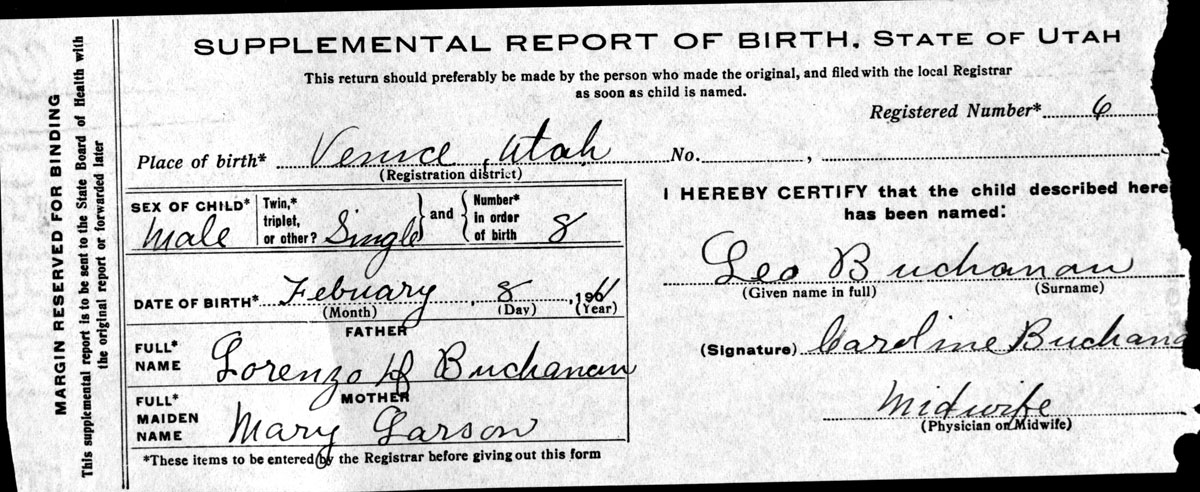 SUPPLEMENTAL REPORT OF BIRTH, STATE OF UTAH
This return should preferably be made by the person who made the original, and filed with the local Registrar
as soon as child is named.
Registered Number* 6
Place of birth* Venice, Utah No. ,
(Registration district)
SEX OF CHILD* Male
Twin,* triplet, or other? Single
and
Number* in order of birth 8
DATE OF BIRTH* Febuary, 8, 19
(Month) (Day) (Year)
FATHER
FULL* NAME Lorenzo Buchanan
MOTHER
FULL* MAIDEN NAME Mary Larson
*These items to be entered by the Registrar before giving out this form
I HEREBY CERTIFY that the child described here
has been named:
Leo Buchanan
(Given name in full) (Surname)
(Signature) Caroline Buchana
Midwife
(Physician or Midwife)
MARGIN RESERVED FOR BINDING
This supplemental report is to be sent to the State Board of Health with
the original report or forwarded later